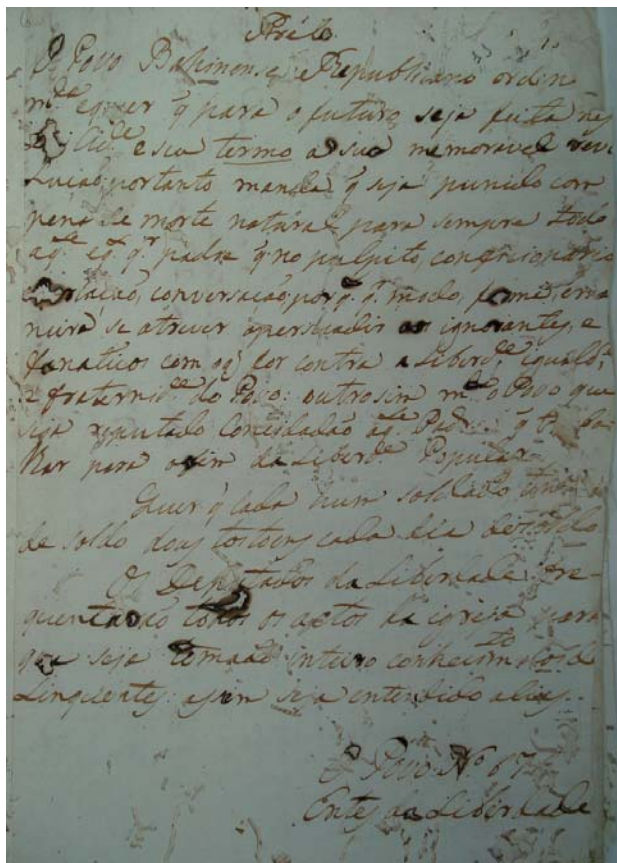 Prélo
O Povo Bahinense e Republicano ordin
mda e quer q para o futuro seja feita nes
Cide e seu termo a sua memoravel rev
Luciaó portanto manda q seja punido com
pena de morte natural para sempre todo
aqle eql qr padre q no pulpito, confecionario
conversacaó por ql qr modo, forma, ema
neira se atrever apersuadir aos ignorantes, e
fanaticos com oq for contra a Liberde, igualde,
e fraternide do Povo: outrosim mda o Povo que
seja reputado Concidadaó aqle Padre q
lhar para ofim da Liberde Popular
Quer q cada hum soldado
de soldo dous tostoens cada dia de soldo
Os Deputados da Liberdade fre-
quentaraó todos os actos da igreja para
que seja tomado inteiro conhecimto dos de
Linquentes: asim seja entendido alias.
O Povo No. 676
Entes da Liberdade